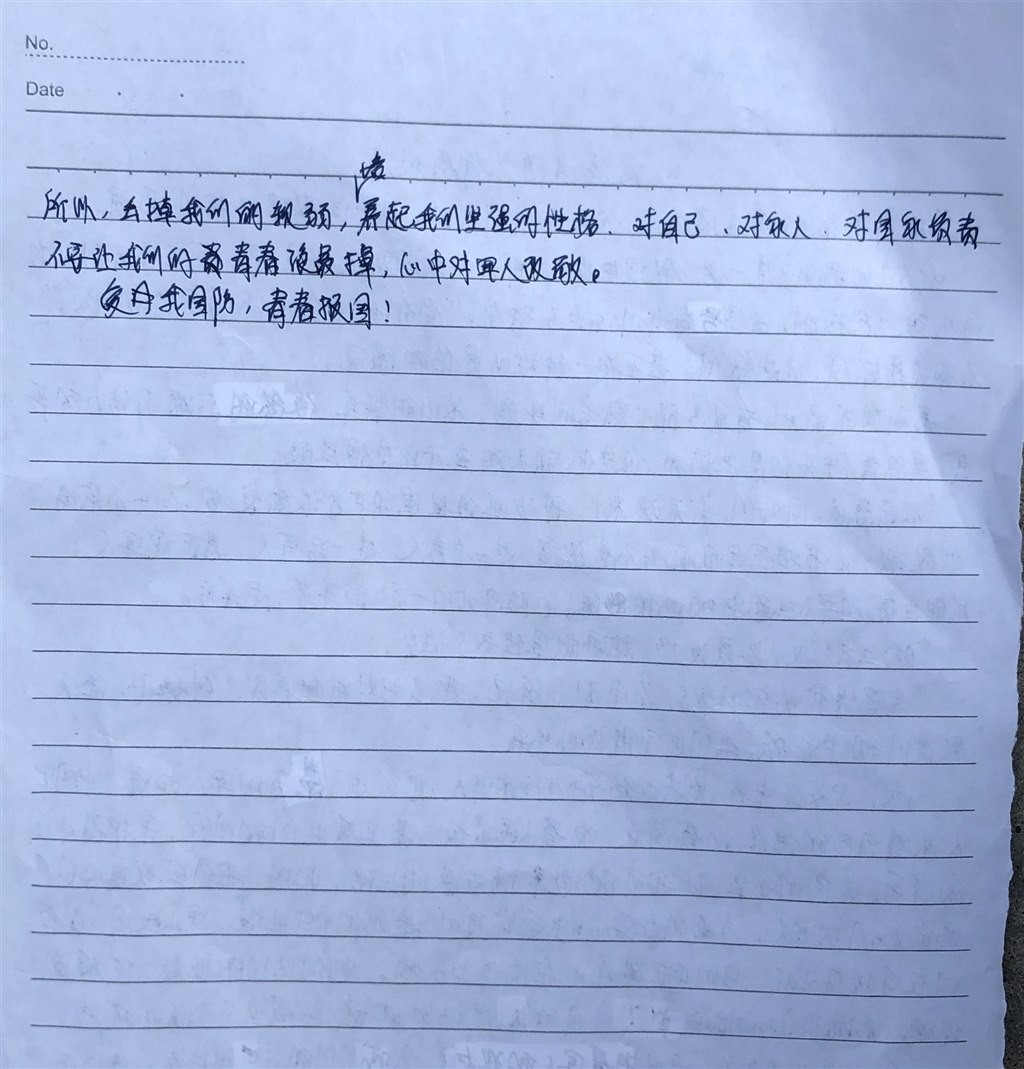 No.
Date
所以,去掉我们的软弱,培养起我们坚强的性格、对自己、对家人、对国家负责
不要让我们的青春浪费掉,心中对军人致敬。
爱我国防,青春报国!